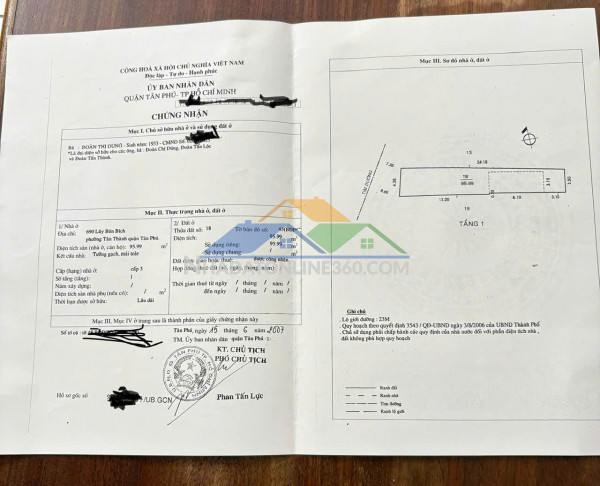 CỘNG HOÀ XÃ HỘI CHỦ NGHĨA VIỆT NAM
Độc lập - Tự do - Hạnh phúc
ỦY BAN NHÂN DÂN
QUẬN TÂN PHÚ- TP HỒ CHÍ MINH
CHỨNG NHẬN
Mục I. Chủ sở hữu nhà ở và sử dụng đất ở
Bà : ĐOÀN THỊ DUNG - Sinh năm: 1953 - CMND Số
*Là đại diện sở hữu cho các ông, bà : Đoàn Chí Dũng, Đoàn Tấn Lộc
và Đoàn Tấn Thành.
Mục II. Thực trạng nhà ở, đất ở
1/ Nhà ở
Địa chỉ: 690 Lũy Bán Bích
phường Tân Thành quận Tân Phú
Diện tích sàn (nhà ở, căn hộ): 95.99 m²
Kết cấu nhà: Tường gạch, mái tole
Cấp (hạng) nhà ở: cấp 3
Số tầng (tầng): /
Năm xây dựng: /
Diện tích sàn nhà phụ (nếu có): / m²
Thời hạn được sở hữu: Lâu dài
2/ Đất ở
Thửa đất số: 18 Tờ bản đồ số:
Diện tích: 95.99 m²
Sử dụng riêng: 95.99 m²
Sử dụng chung: / m²
Đất được giao hoặc thuê: được công nhận
Hợp đồng thuê đất (số, ngày, tháng, năm):
Thời gian thuê từ ngày / tháng / năm /
đến ngày / tháng / năm /
Mục III, Mục IV ở trang sau là thành phần của giấy chứng nhận này
Tân Phú, ngày 15 tháng 6 năm 2007
TM. Ủy ban nhân dân quận Tân Phú
KT. CHỦ TỊCH
PHÓ CHỦ TỊCH
Phan Tấn Lực
Hồ sơ gốc số
/UB.GCN
Mục III. Sơ đồ nhà ở, đất ở
TIM ĐƯỜNG
13
24.18
18
95.99
3.15
13.20
8.10
19
TẦNG 1
Ghi chú
- Lộ giới đường : 23M
. Quy hoạch theo quyết định 3543 / QĐ-UBND ngày 3/8/2006 của UBND Thành Phố
. Chủ sử dụng phải chấp hành các quy định của nhà nước đối với phần diện tích nhà ,
đất không phù hợp quy hoạch
Ranh đất
Ranh nhà
Tim đường
Ranh lộ giới